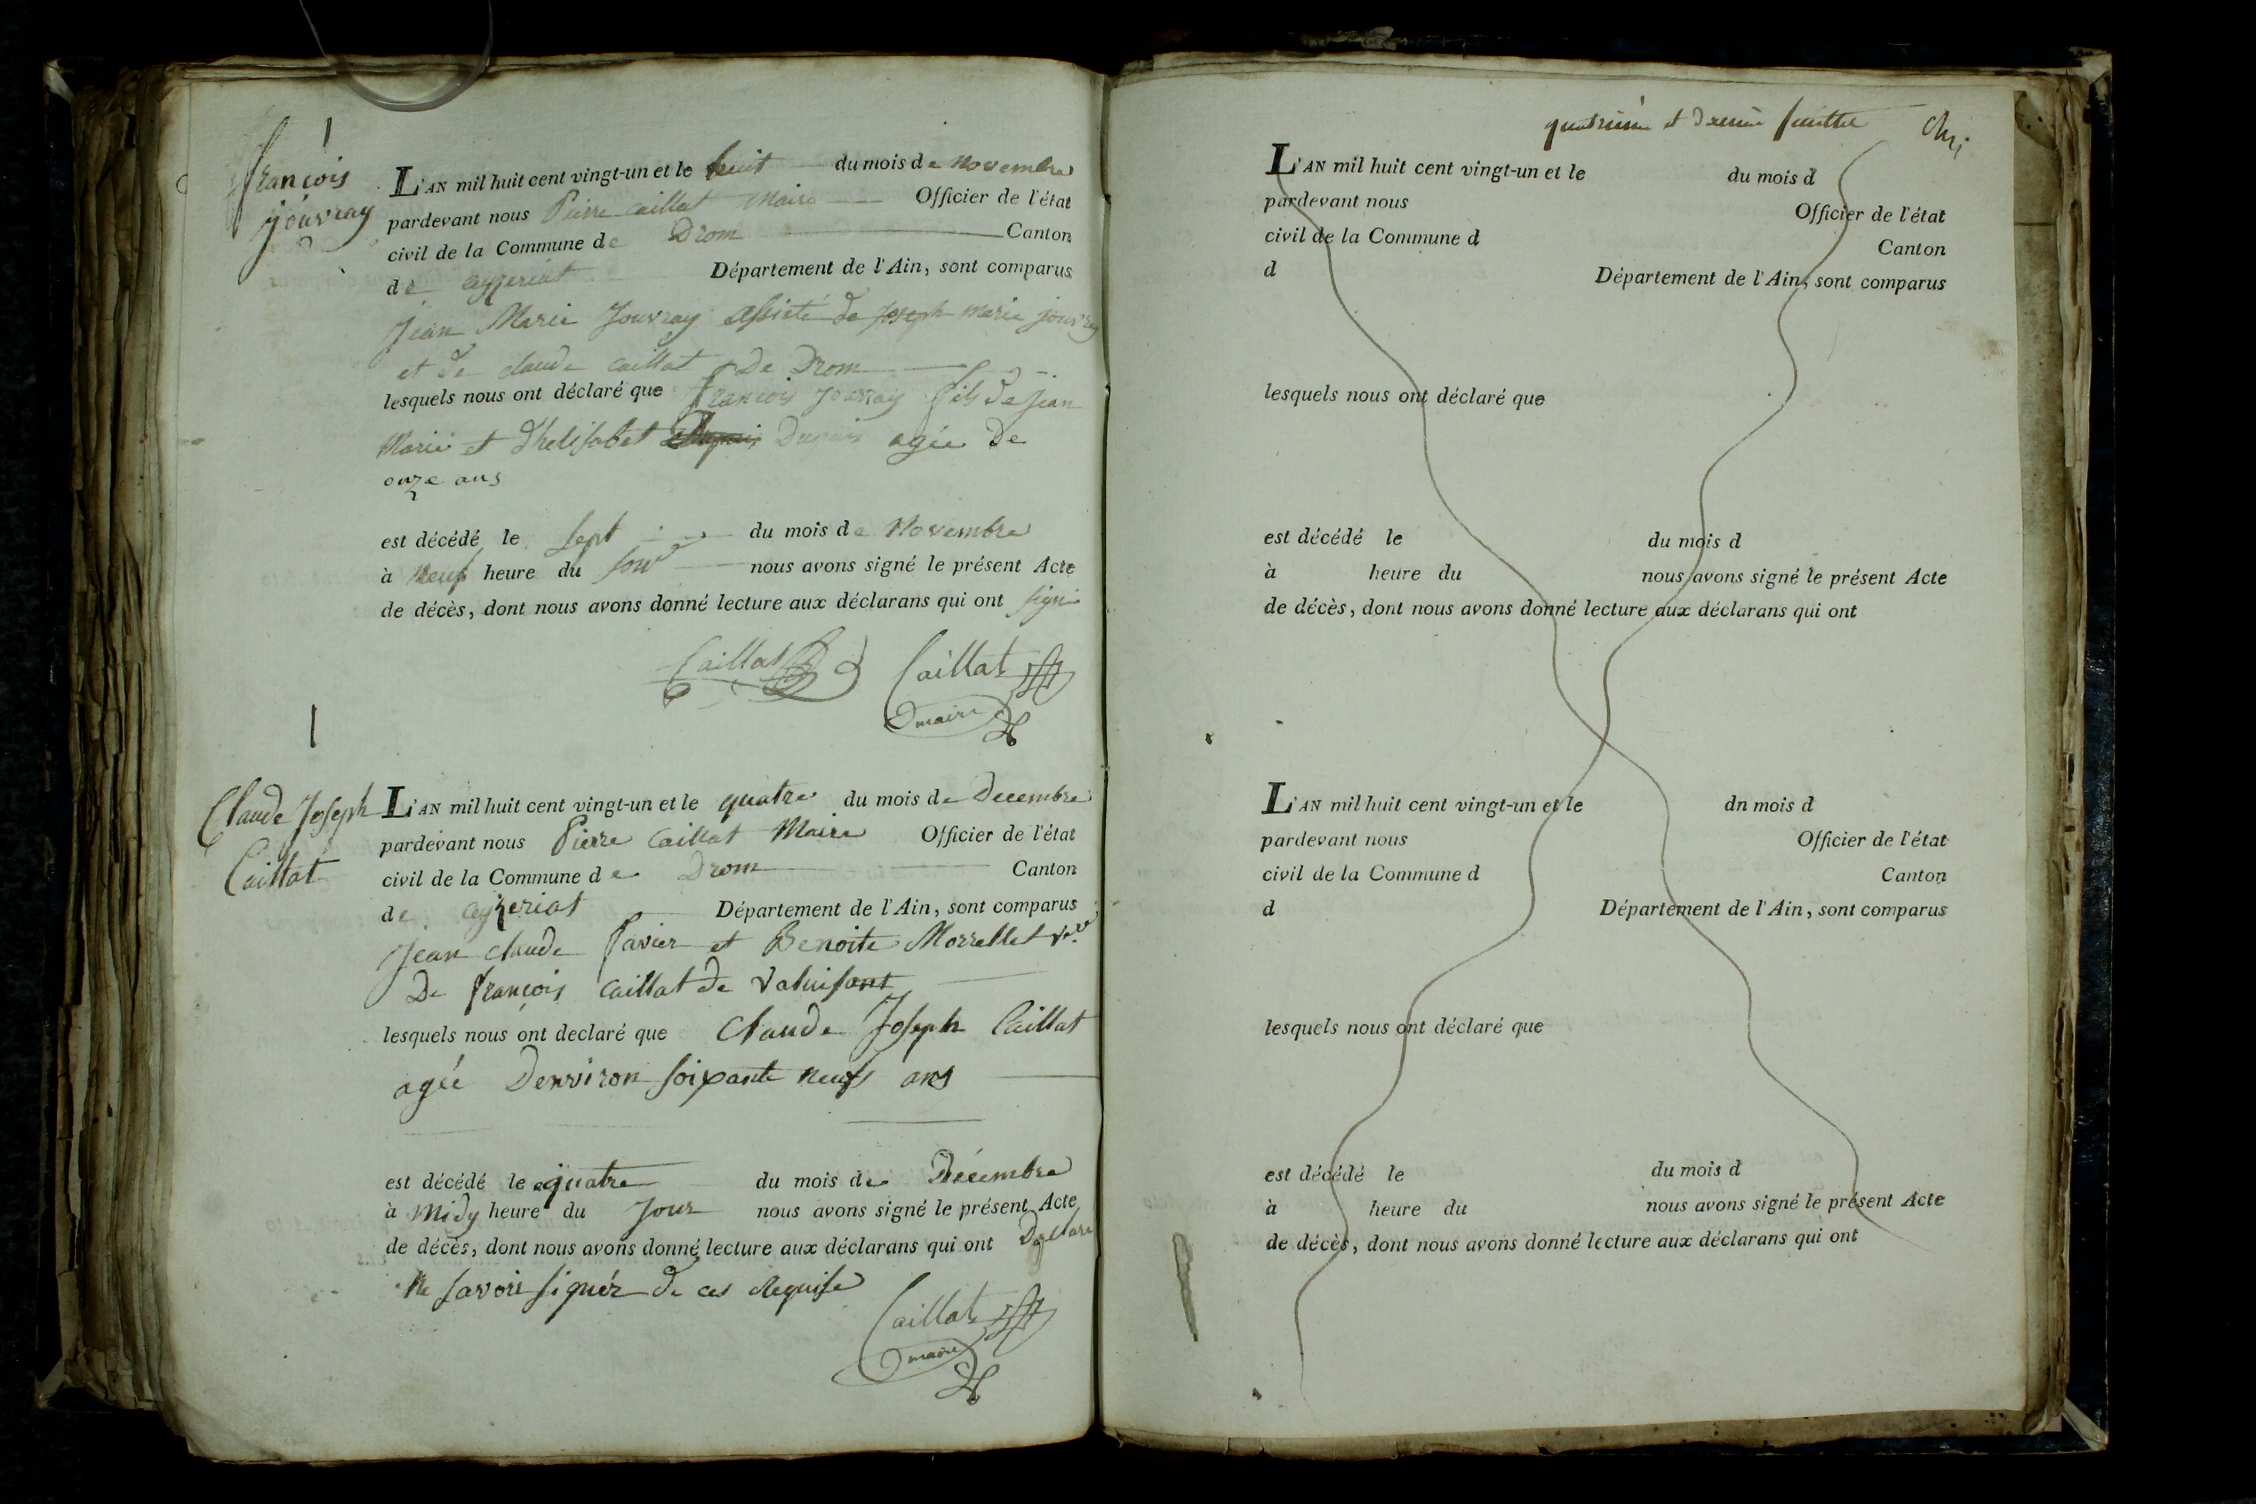 François
jouvray
L'AN mil huit cent vingt-un et le huit du mois de Novembre
pardevant nous Pierre caillat Maire Officier de l'état
civil de la Commune de Drom Canton
de ceyzeriat Département de l'Ain, sont comparus
Jean Marie Jouvray assisté de Joseph marie jouvray
et de claude caillat De Drom
lesquels nous ont déclaré que François Jouvray fils de Jean
Marie et d'helisabet Dupuis agée de
onze ans
est décédé le sept du mois de Novembre
à neuf heure du soir nous avons signé le présent Acte
de décès, dont nous avons donné lecture aux déclarans qui ont signé
Caillat Caillat
maire
Claude Joseph
Caillat
L'AN mil huit cent vingt-un et le quatre du mois de Decembre
pardevant nous Pierre caillat Maire Officier de l'état
civil de la Commune de Drom Canton
de ceyzeriat Département de l'Ain, sont comparus
Jean claude Pavier et Benoite Morrellet
De françois caillat de
lesquels nous ont declaré que Claude Joseph Caillat
agée Denviron soixante neufs ans
est décédé le quatre du mois de Décembre
à Midy heure du Jour nous avons signé le présent Acte
de décès, dont nous avons donné lecture aux déclarans qui ont
Ne savoir signér de ces Requise
Caillat
maire
quatrième et dernier feuillet
L'AN mil huit cent vingt-un et le du mois d
pardevant nous Officier de l'état
civil de la Commune d Canton
d Département de l'Ain, sont comparus
lesquels nous ont déclaré que
est décédé le du mois d
à heure du nous avons signé le présent Acte
de décès, dont nous avons donné lecture aux déclarans qui ont
L'AN mil huit cent vingt-un et le dn mois d
pardevant nous Officier de l'état
civil de la Commune d Canton
d Département de l'Ain, sont comparus
lesquels nous ont déclaré que
est décédé le du mois d
à heure du nous avons signé le présent Acte
de décès, dont nous avons donné lecture aux déclarans qui ont